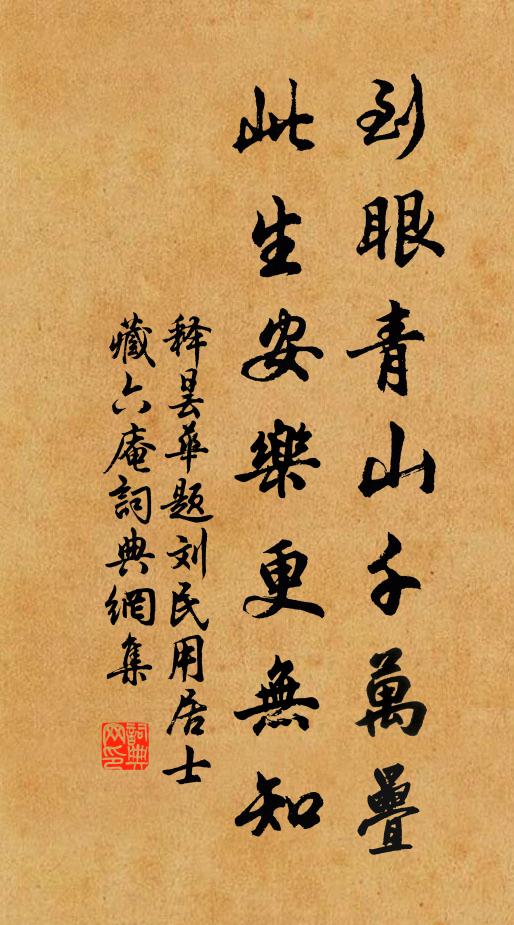 到眼青山千萬疊
此生安樂更無知
释昙华题刘民用居士
藏六庵詞典網集
詞典網印